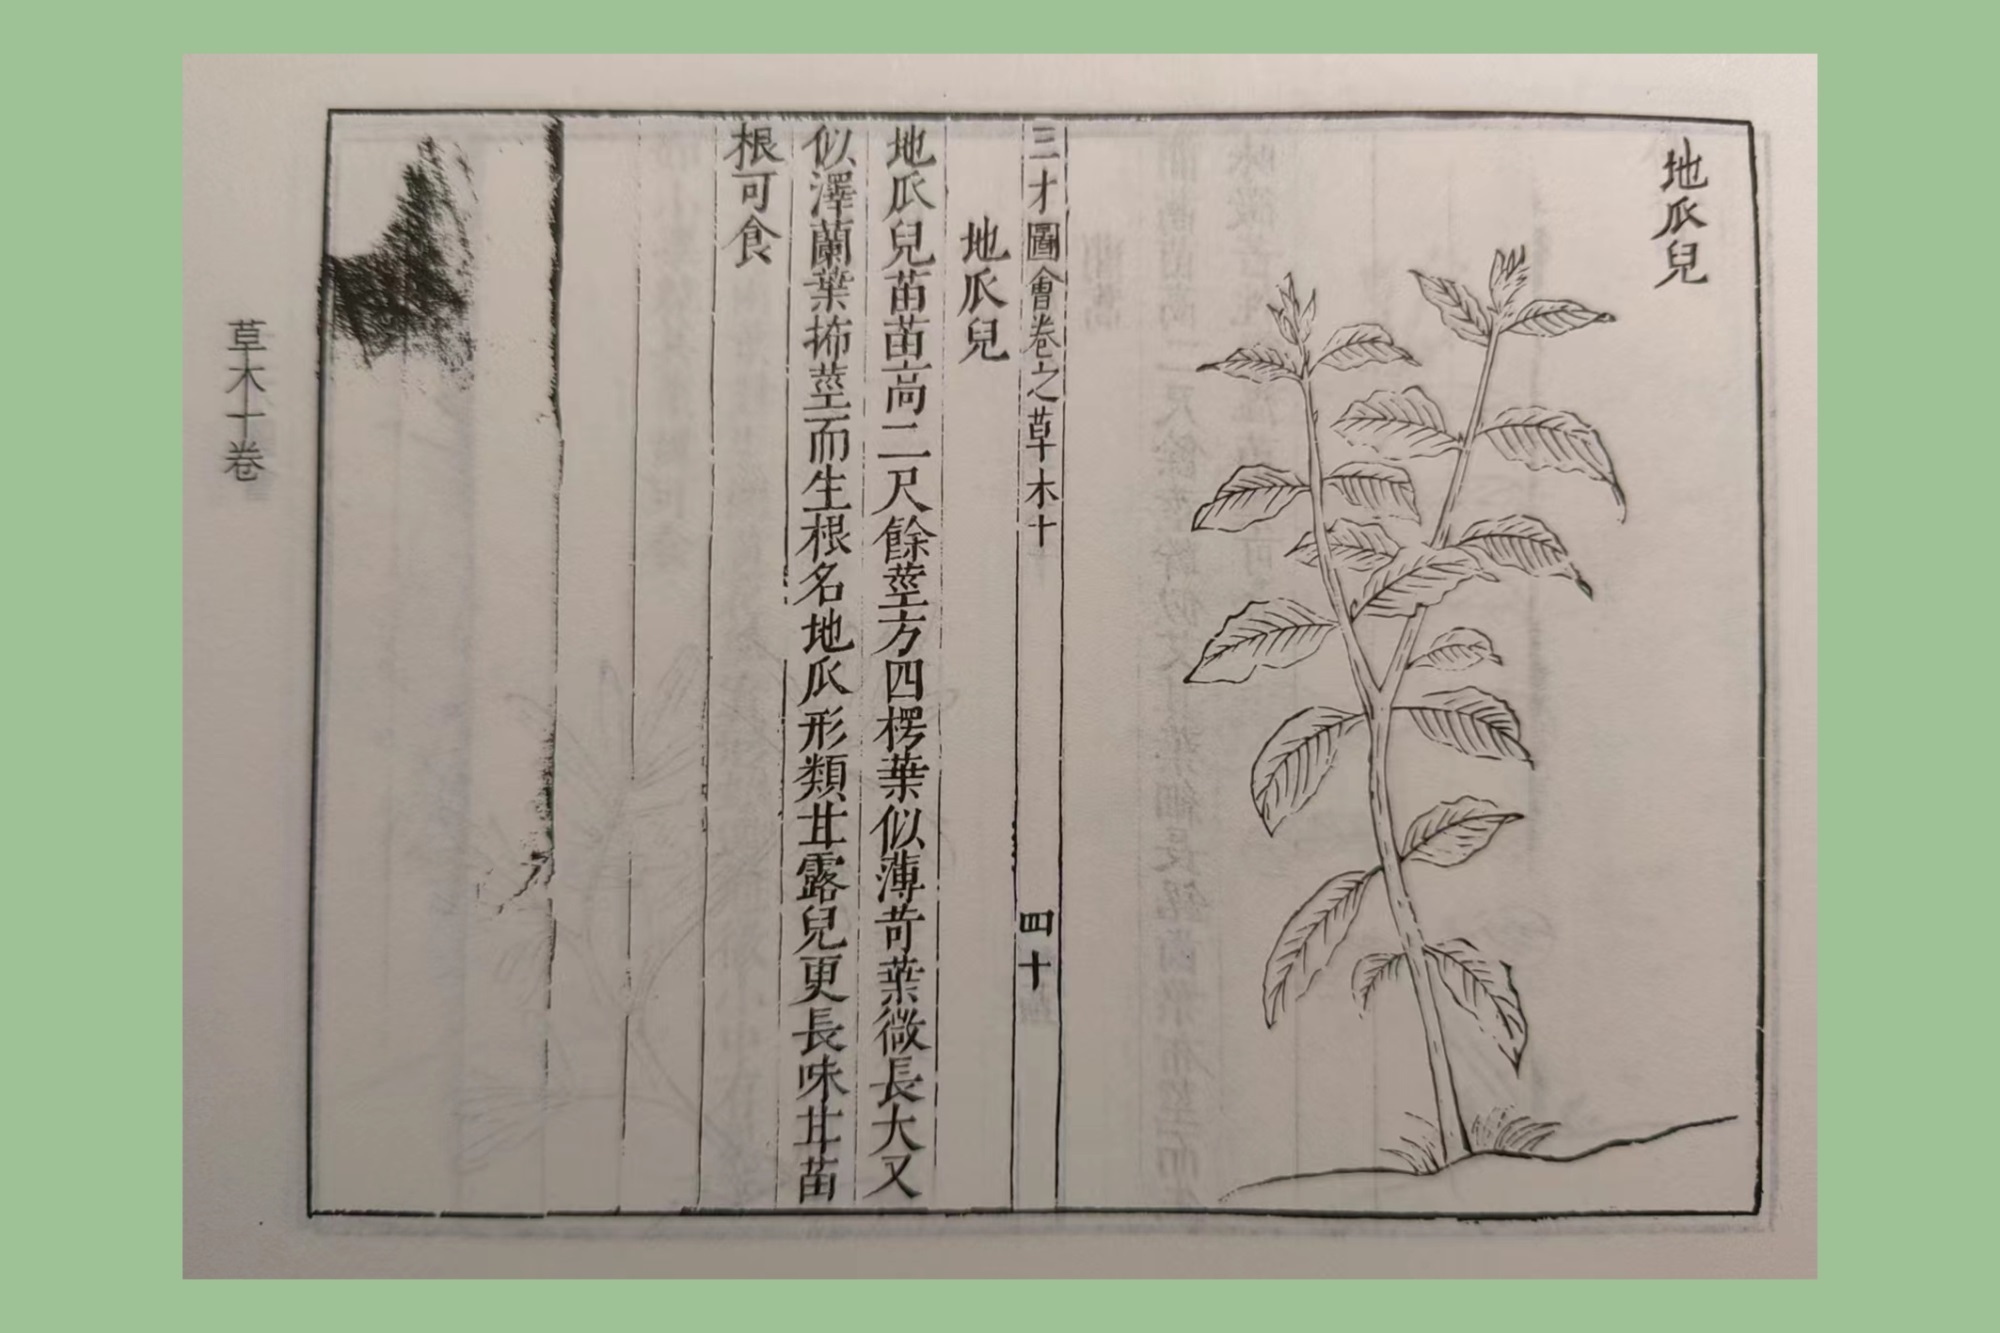 地瓜兒
三才圖會卷之草木十
四十
地瓜兒
地瓜兒苗苗高二尺餘莖方四楞葉似薄苛葉微長大又
似澤蘭葉抪莖而生根名地瓜形類甘露兒更長味甘苗
根可食
草木十卷